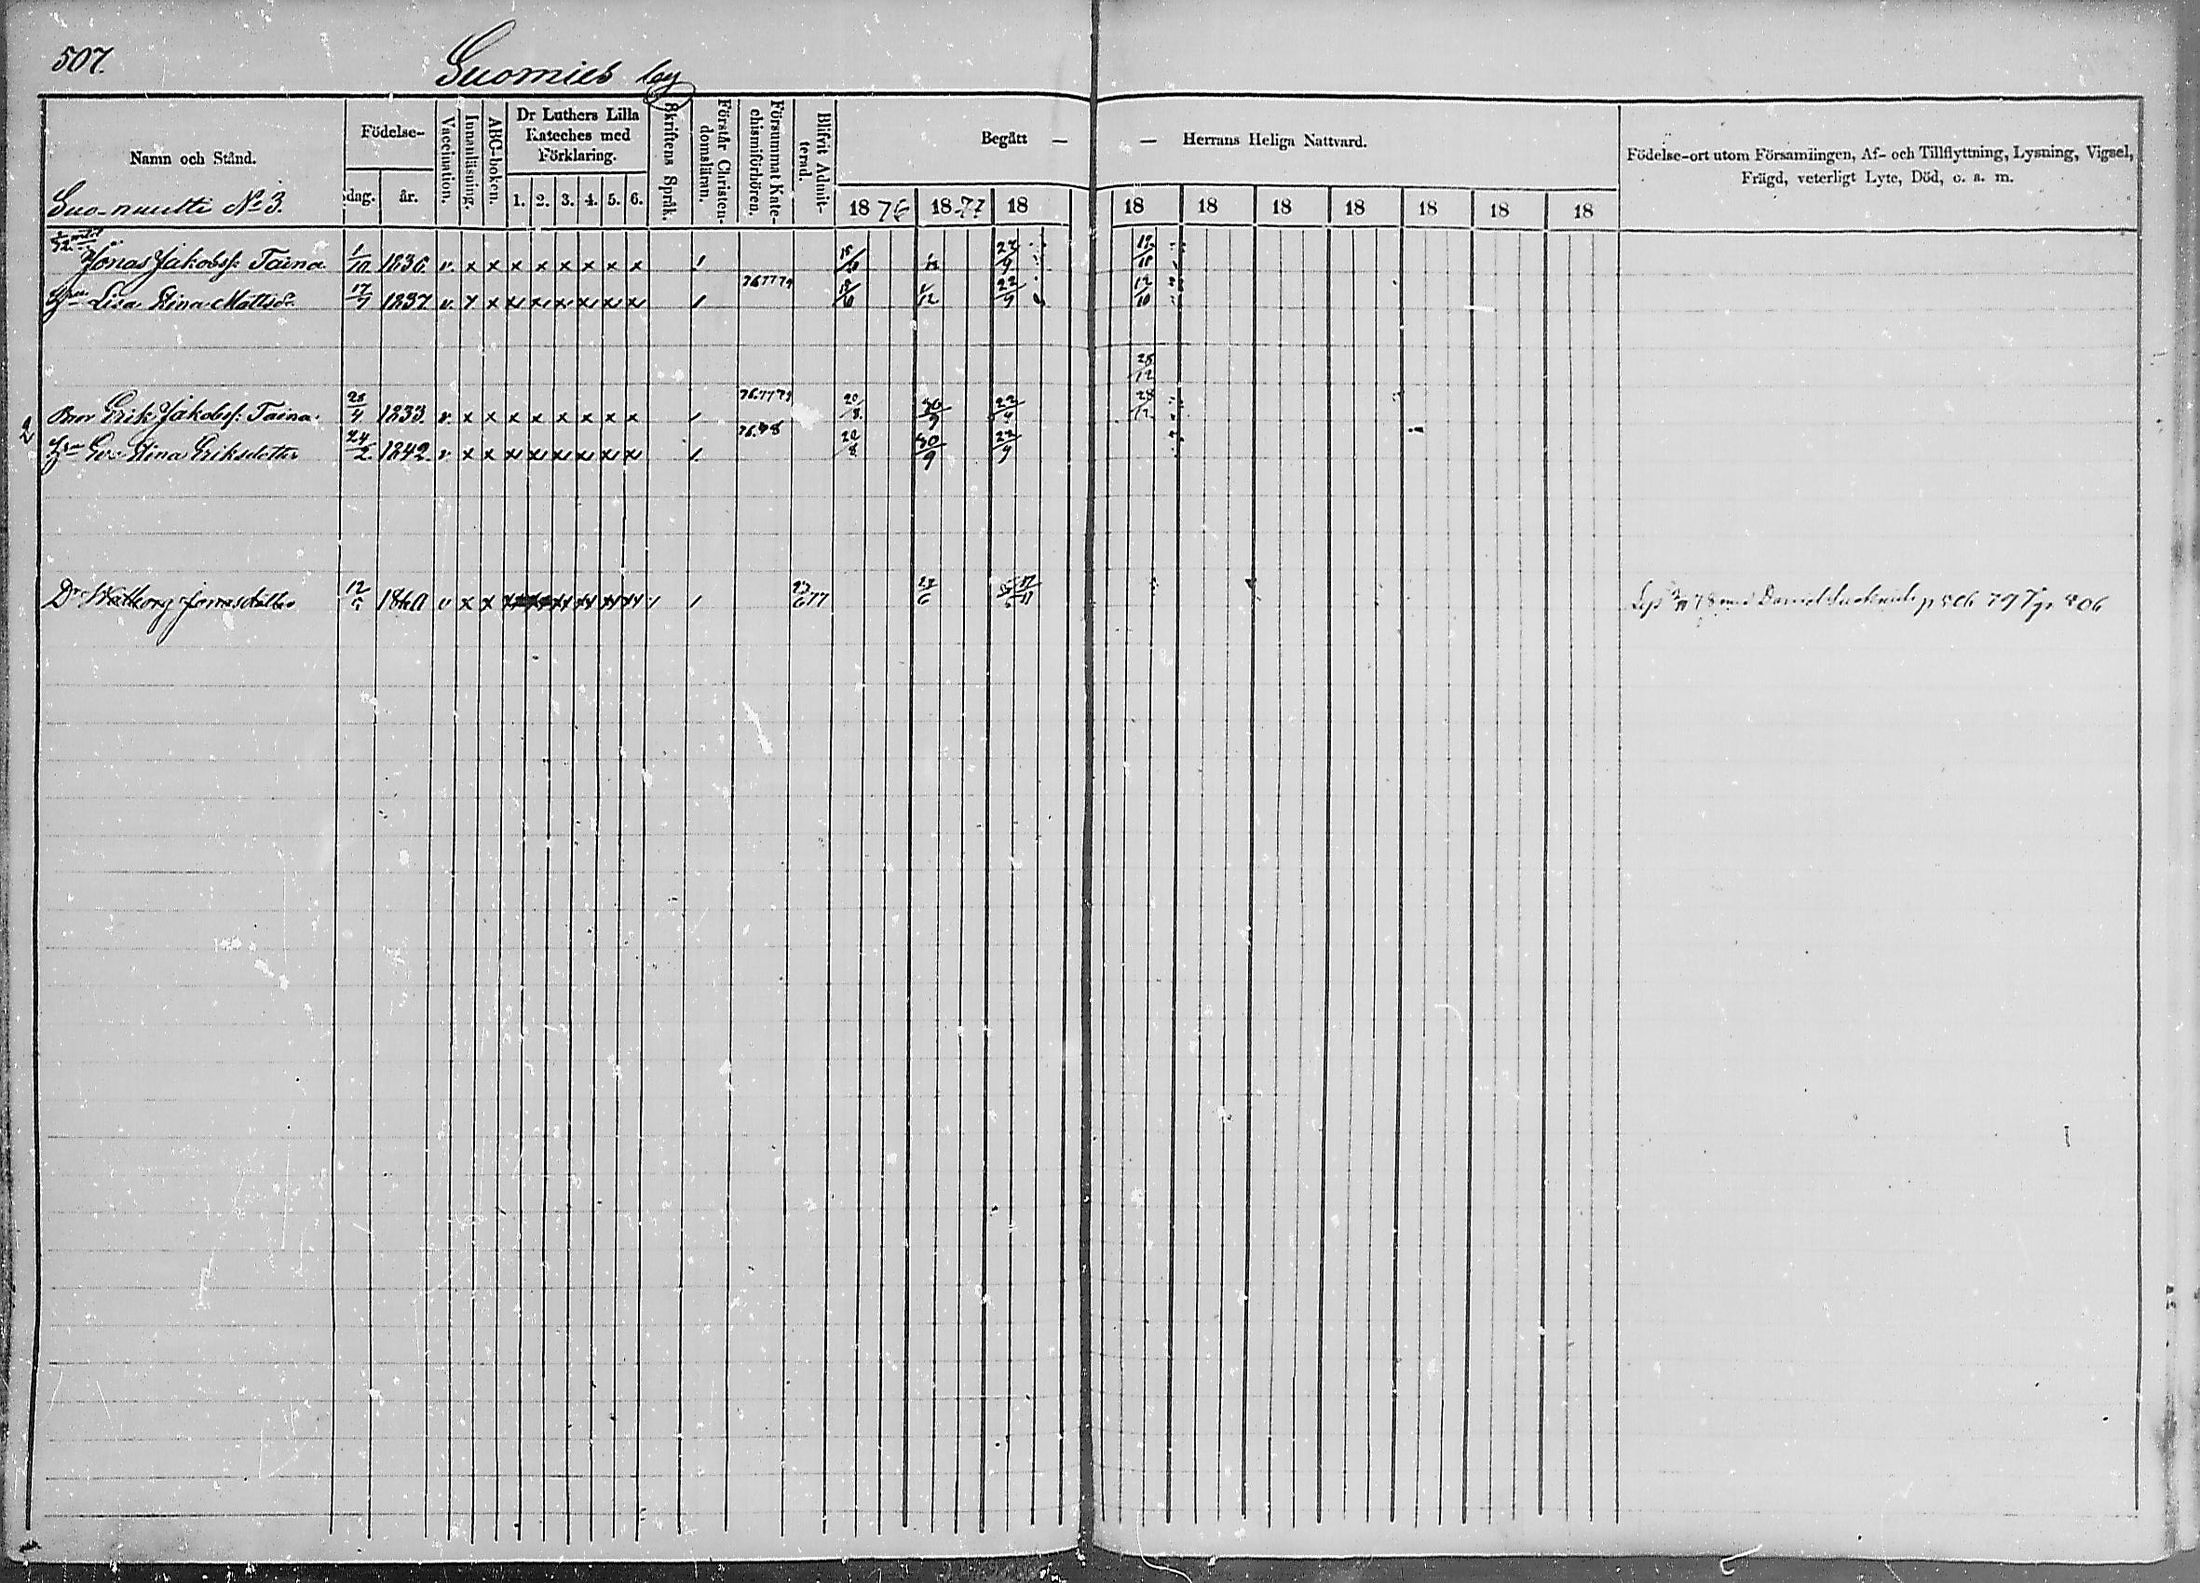 507.
Suomies by
Namn och Stånd.
Födelse-
dag. år.
Vaccination.
Innanläsning.
ABC-boken.
Dr Luthers Lilla
Kateches med
Förklaring.
1. 2. 3. 4. 5. 6.
Skriftens Språk.
Förstår Christen-
domsläran.
Försummat Kate-
chismiförhören.
Blifvit Admit-
terad.
Begått — — Herrans Heliga Nattvard.
1876 1877 18 18 18 18 18 18 18 18
Födelse-ort utom Församlingen, Af- och Tillflyttning, Lysning, Vigsel,
Frägd, veterligt Lyte, Död, o. s. m.
Suo-nuutti No 3.
Jonas Jakobss: Taina 1/10 1836. v. x x x x x x x x 22/9
Lisa Stina Mattsdr 17/7 1837 v. x x x x x x x x 767779 1/12 22/9 12/10
25/12
Bror Erik Jakobss: Taina. 1833. v. x x x x x x x x 767779 20/8 30/9 22/9 28/12
2 Eva Stina Eriksdotter 24/2 1842. v x x x x x x x x 76.78 20/8 30/9 22/9
Dr Walborg Jonasdotter 12/5 1860 v x x 77
78 med Daniel p 506 79 Tgr 506